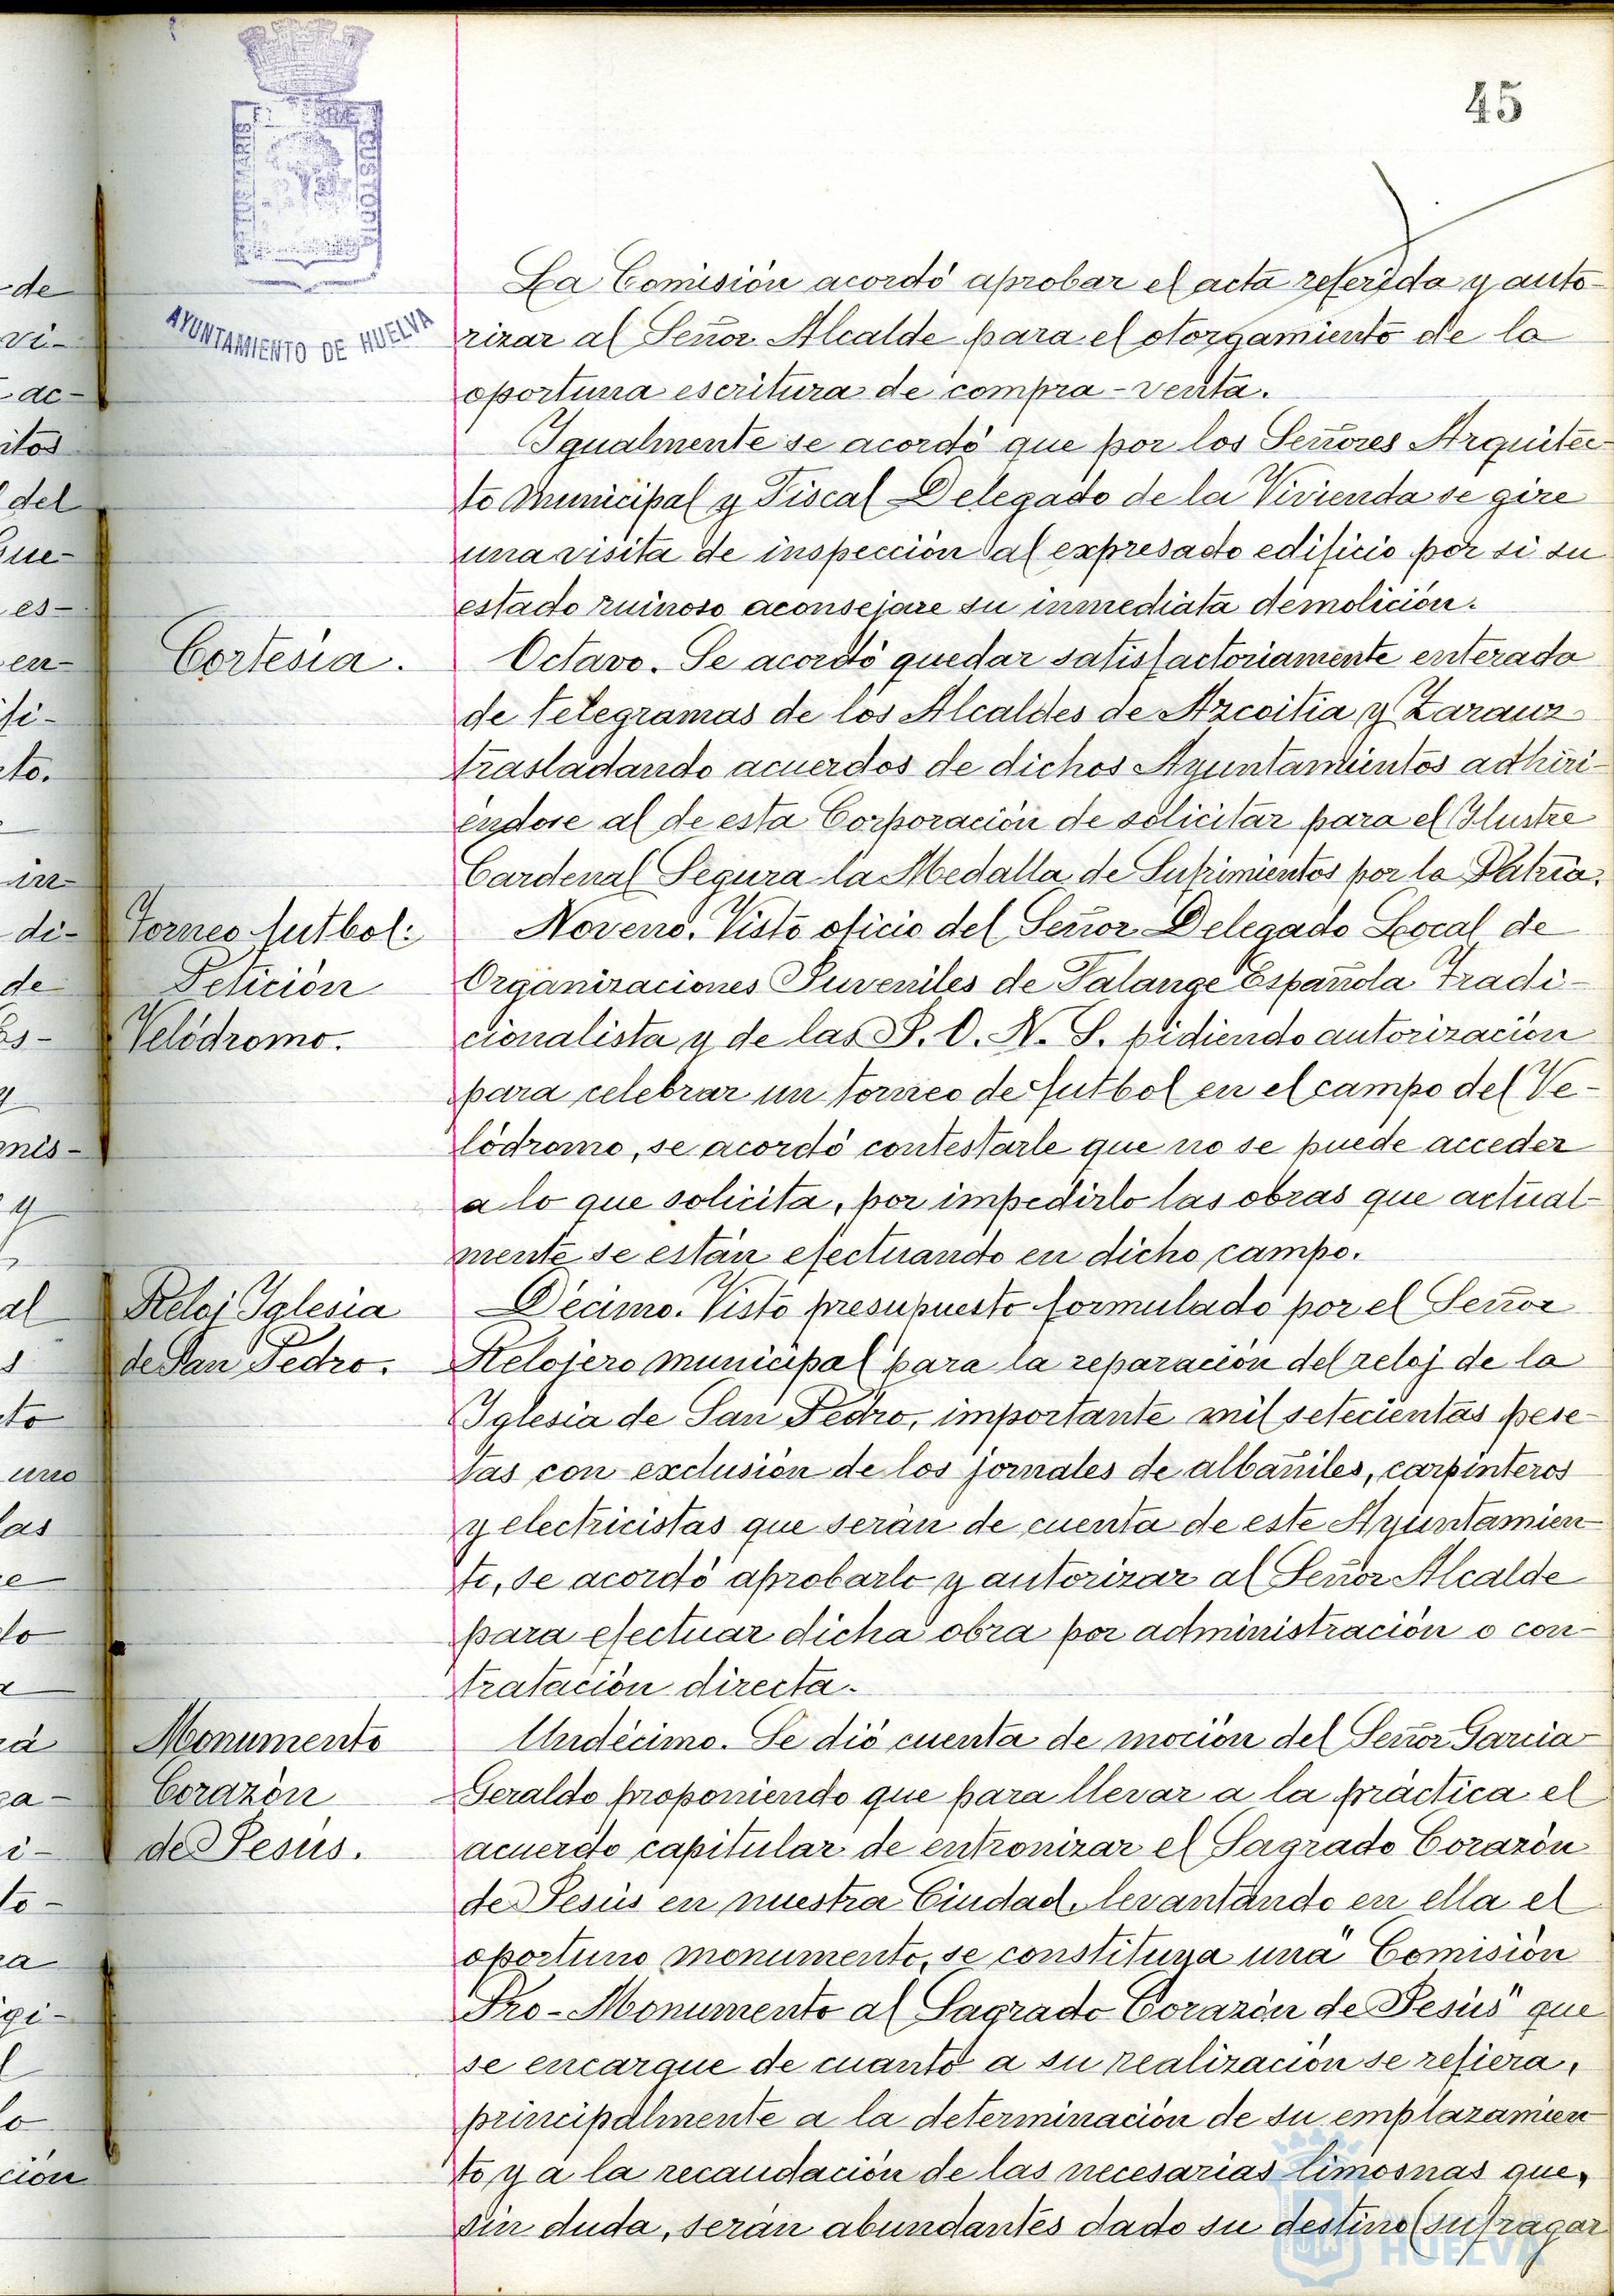 45
PORTUS MARIS ET TERRE CUSTODIA
AYUNTAMIENTO DE HUELVA
La Comisión acordó aprobar el acta referida y auto-
rizar al Señor Alcalde para el otorgamiento de la
oportuna escritura de compra-venta.
Igualmente se acordó que por los Señores Arquitec-
to Municipal y Fiscal Delegado de la Vivienda se gire
una visita de inspección al expresado edificio por si su
estado ruinoso aconsejare su inmediata demolición.
Cortesía.
Octavo. Se acordó quedar satisfactoriamente enterada
de telegramas de los Alcaldes de Azcoitia y Zarauz
trasladando acuerdos de dichos Ayuntamientos adhiri-
éndose al de esta Corporación de solicitar para el Ilustre
Cardenal Segura la Medalla de Sufrimientos por la Patria.
Torneo futbol:
Petición
Velódromo.
Noveno. Visto oficio del Señor Delegado Local de
Organizaciones Juveniles de Falange Española Tradi-
cionalista y de las J. O. N. S. pidiendo autorización
para celebrar un torneo de futbol en el campo del Ve-
lódromo, se acordó contestarle que no se puede acceder
a lo que solicita, por impedirlo las obras que actual-
mente se están efectuando en dicho campo.
Reloj Iglesia
de San Pedro.
Décimo. Visto presupuesto formulado por el Señor
Relojero municipal para la reparación del reloj de la
Iglesia de San Pedro, importante mil setecientas pese-
tas con exclusión de los jornales de albañiles, carpinteros
y electricistas que serán de cuenta de este Ayuntamien-
to, se acordó aprobarlo y autorizar al Señor Alcalde
para efectuar dicha obra por administración o con-
tratación directa.
Monumento
Corazón
de Jesús.
Undécimo. Se dió cuenta de moción del Señor Garcia
Geraldo proponiendo que para llevar a la práctica el
acuerdo capitular de entronizar el Sagrado Corazón
de Jesús en nuestra Ciudad, levantando en ella el
oportuno monumento, se constituya una "Comisión
Pro-Monumento al Sagrado Corazón de Jesús" que
se encargue de cuanto a su realización se refiera,
principalmente a la determinación de su emplazamien-
to y a la recaudación de las necesarias limosnas que,
sin duda, serán abundantes dado su destino (sufragar
HUELVA